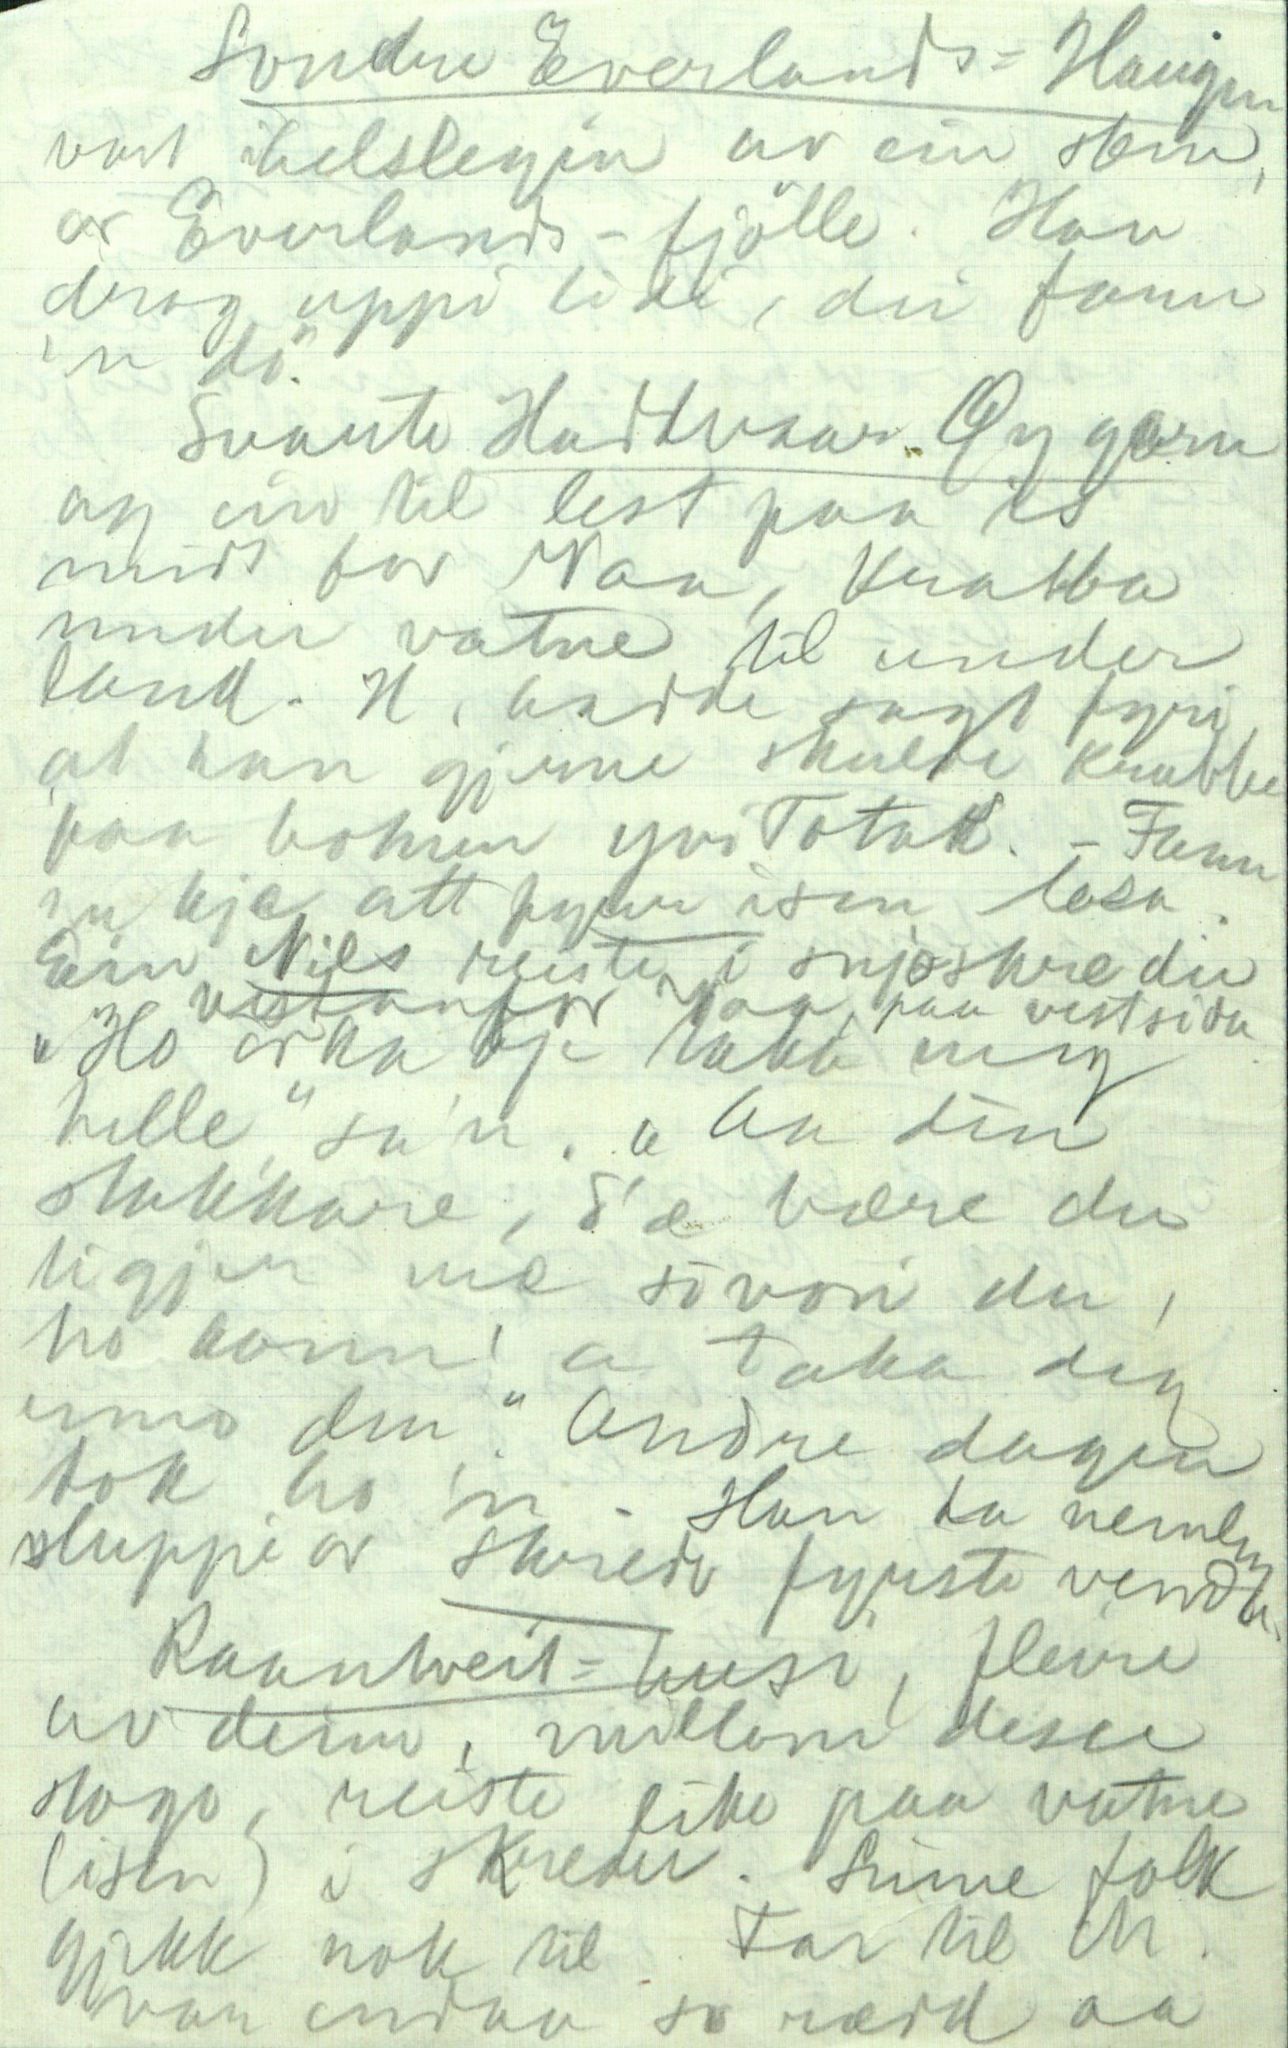 Sondre Everlands-Haugen
vart ihelslegin av ein stein,
or Everlands-fjölle. Han
drog uppi lidi, dei fann
'n dö".
Svarte Hadtvaar Öygarn
og ein til lest paa is
midt for Naa, krabba
under vatne til under
land. H. hadde sagt fyri,
at han gjerne skulde krabbe
paa botnen yvi Totak. - Fann
'n kje att fyrr isen losa.
Ein Nils reiste i snjoskredu
vestanfor Naa, paa vestsida
"Ho orka kje taka meg
helle," sa'n. "Aa din
stakkare, d'æ bære du
ligjer me sovori du,
ho konn' a taka deg
enno den". Andre dagen
tok ho 'n. - Han va nemleg
sluppi or skredo fyrste vendi.
Raantveit-husi, fleire
av deim, millom desse
stogo, reiste like paa vatne
(isen) i skreder. Sume folk
gjekk nok til. Far til M.
var endaa so rædd aa